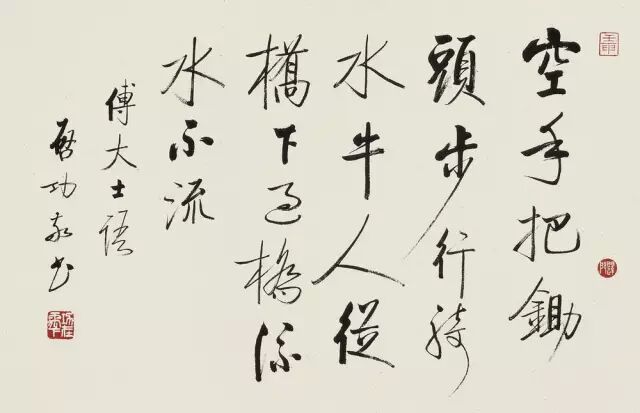 空手把鋤
頭步行騎
水牛人從
橋下過橋流
水不流
傅大士語
啓功敬書